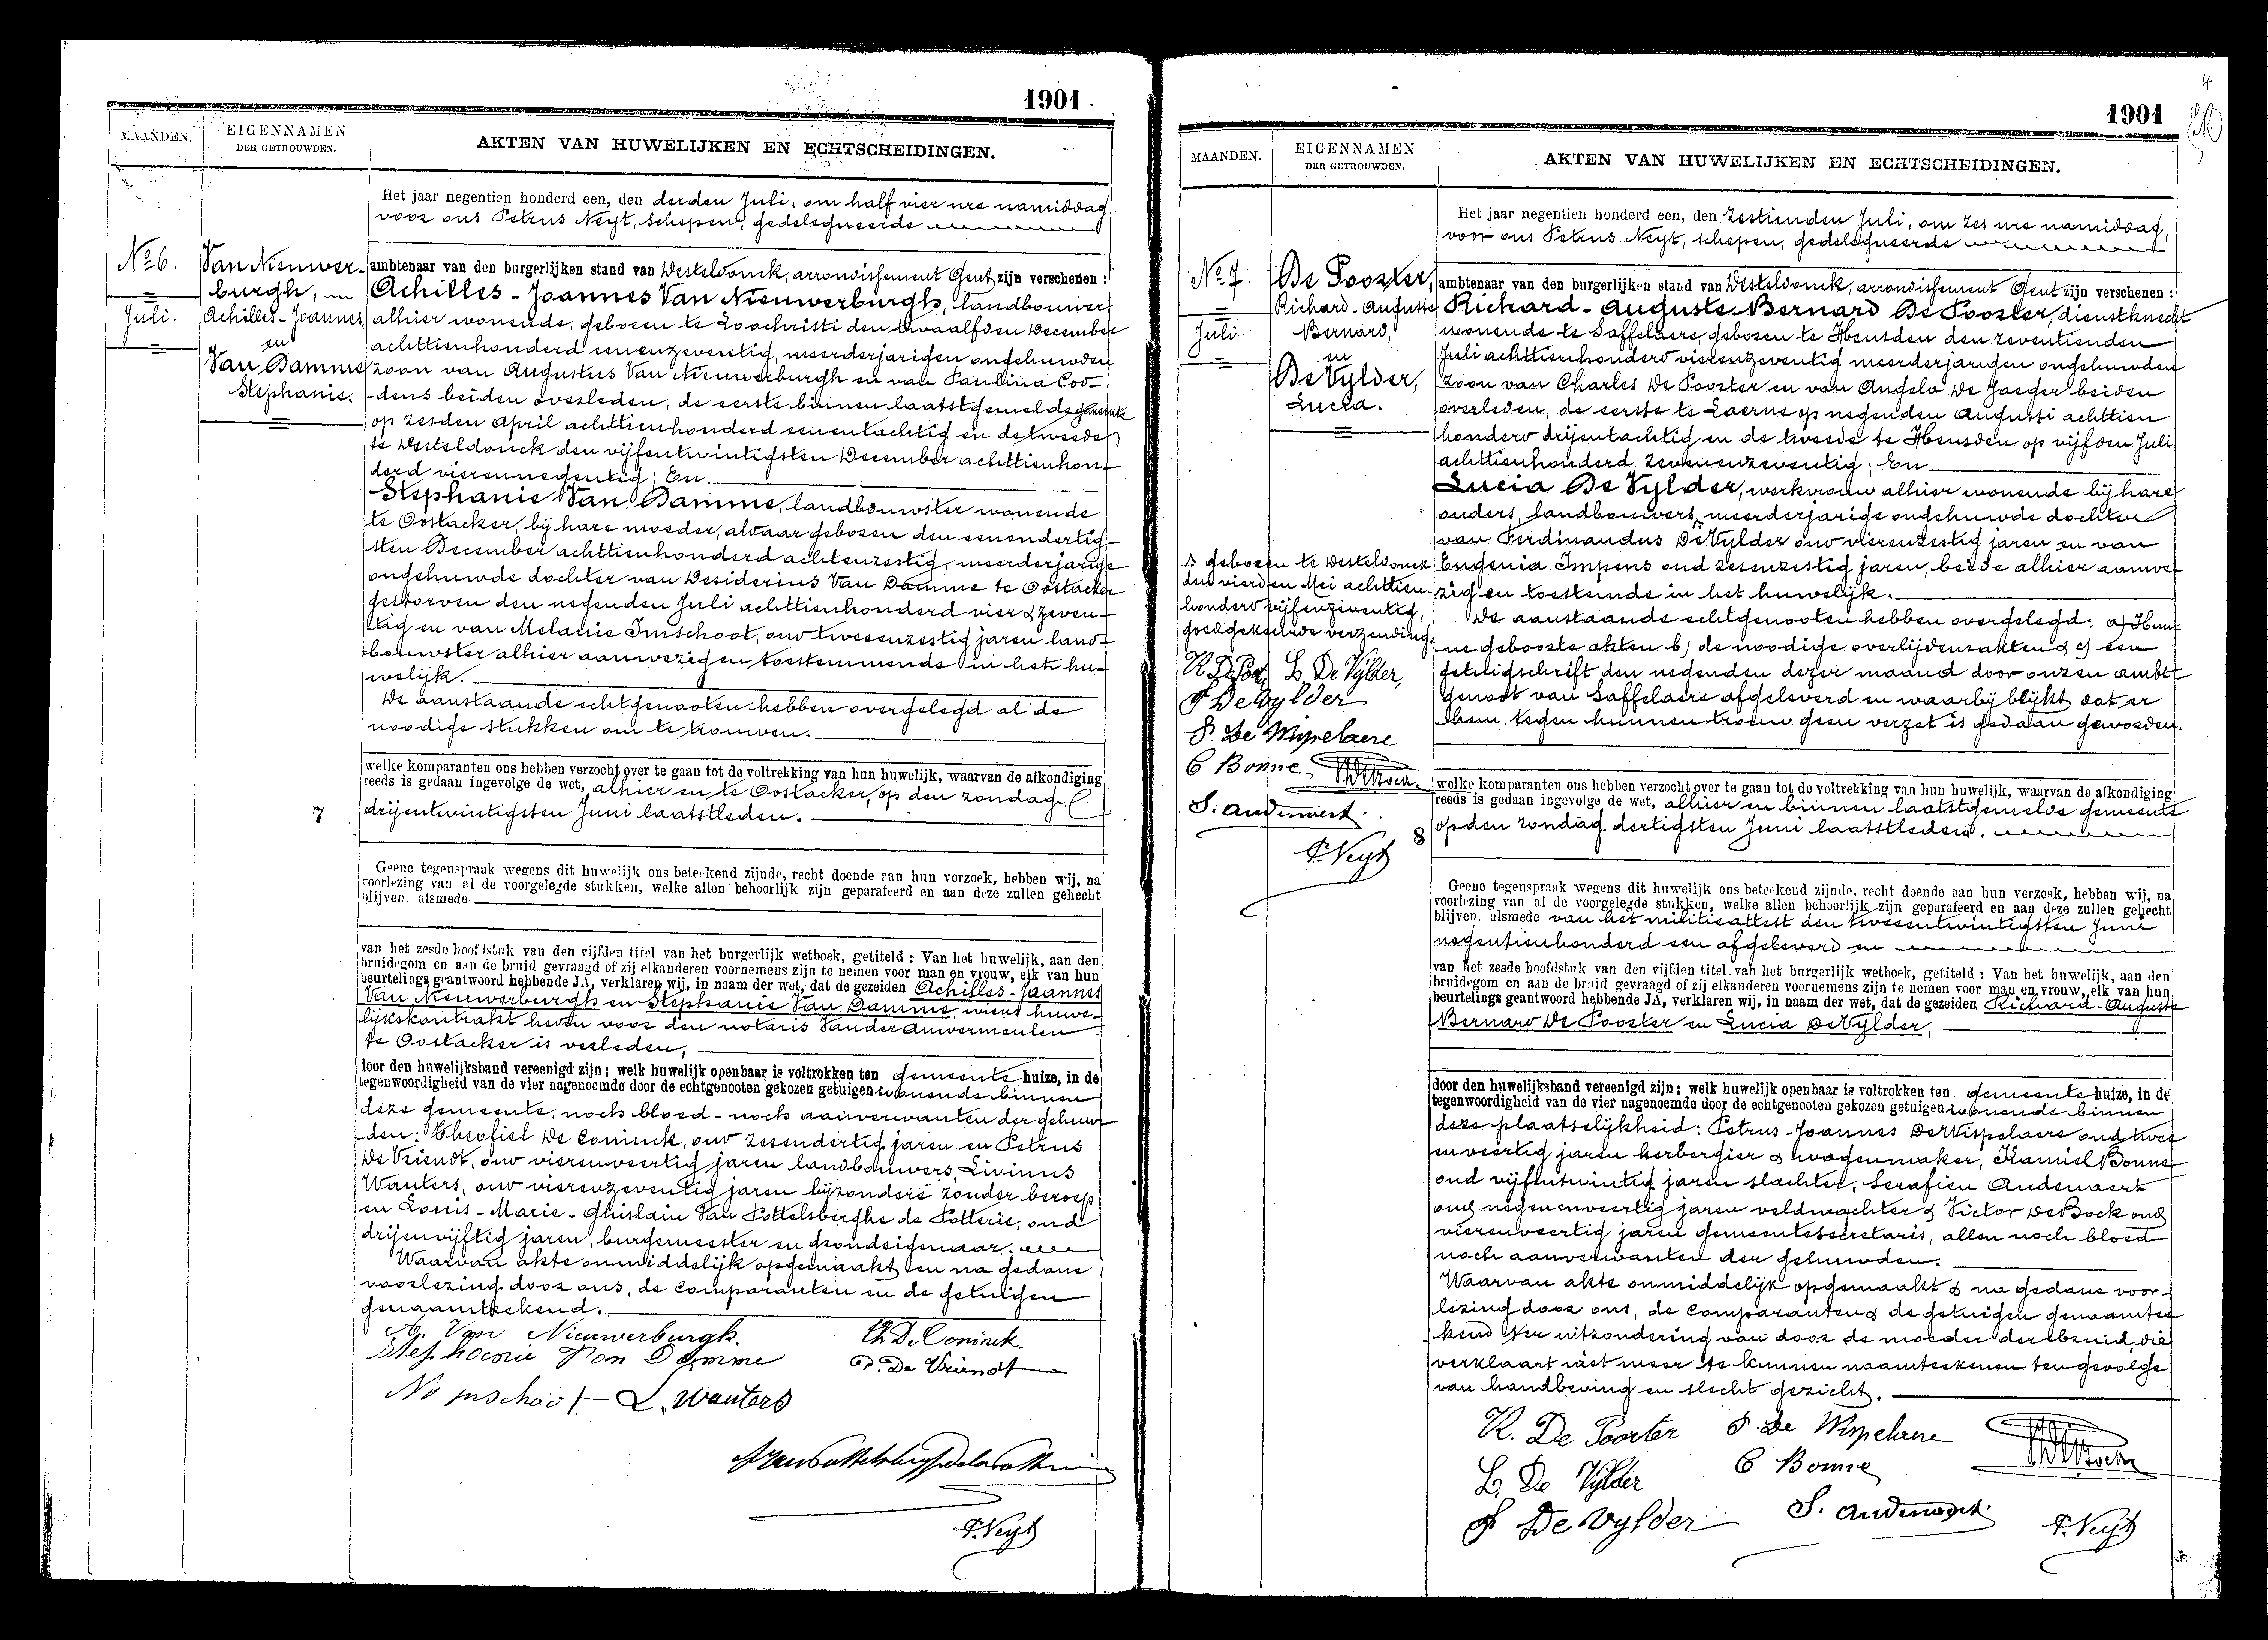 1901
MAANDEN.
EIGENNAMEN
DER GETROUWDEN.
AKTEN VAN HUWELIJKEN EN ECHTSCHEIDINGEN.
Het jaar negentien honderd een, den derden Juli, om half vier ure namiddag
voor ons Petrus Neyt, schepen, gedelegueerde
No 6.
Juli.
Van Nieuwer-
burgh,
Achilles-Joannes,
en
Van Damme
Stephanie.
ambtenaar van den burgerlijken stand van Desteldonck, arrondissement Gent zijn verschenen :
Achilles-Joannes Van Nieuwerburgh, landbouwer
alhier wonende, geboren te Loochristi den twaalfden December
achttienhonderd eenenzeventig, meerderjarigen ongehuwden
zoon van Augustus Van Nieuwerburgh en van Paulina Cod-
dens beiden overleden, de eerste binnen laatstgemelde gemeente
op zesden April achttienhonderd eenentachtig en de tweede
te Desteldonck den vijfentwintigsten December achttienhon-
derd vierennegentig; En
Stephanie Van Damme, landbouwster wonende
te Oostacker, bij hare moeder, alwaar geboren den eenendertig-
sten December achttienhonderd achtenzestig, meerderjarige
ongehuwde dochter van Desiderius Van Damme te Oostacker
gestorven den negenden Juli achttienhonderd vier & zeven-
tig en van Melanie Imschoot, oud tweeenzestig jaren land-
bouwster alhier aanwezig en toestemmende in het hu-
welijk.
De aanstaande echtgenooten hebben overgelegd al de
noodige stukken om te trouwen.
welke komparanten ons hebben verzocht over te gaan tot de voltrekking van hun huwelijk, waarvan de afkondiging
reeds is gedaan ingevolge de wet, alhier en te Oostacker, op den zondag
7
drijentwintigsten Juni laatstleden.
Geene tegenspraak wegens dit huwelijk ons beteekend zijnde, recht doende aan hun verzoek, hebben wij, na
voorlezing van al de voorgelegde stukken, welke allen behoorlijk zijn geparafeerd en aan deze zullen gehecht
blijven. alsmede
van het zesde hoofdstuk van den vijfden titel van het burgerlijk wetboek, getiteld : Van het huwelijk, aan den
bruidegom en aan de bruid gevraagd of zij elkanderen voornemens zijn te nemen voor man en vrouw, elk van hun
beurtelings geantwoord hebbende JA, verklaren wij, in naam der wet, dat de gezeiden Achilles-Joannes
Van Nieuwerburgh en Stephanie Van Damme, wiens huwe-
lijkskontrakt heden voor den notaris Vander Auwermeulen
te Oostacker is verleden,
door den huwelijksband vereenigd zijn; welk huwelijk openbaar is voltrokken ten gemeente huize, in de
tegenwoordigheid van de vier nagenoemde door de echtgenooten gekozen getuigen wonende binnen
deze gemeente, noch bloed- noch aanverwanten der gehuw-
den: Theofiel De Coninck, oud zesendertig jaren en Petrus
De Vriendt, oud vierenveertig jaren landbouwers Livinus
Wauters, oud vierenzeventig jaren bijzondere zonder beroep
en Louis-Marie-Ghislain Van Pottelsberghe de Potterie, oud
drijenvijftig jaren, burgemeester en grondeigenaar.
Waarvan akte onmiddelijk opgemaakt en na gedane
voorlezing door ons, de comparanten en de getuigen
genaamteekend.
A. Van Nieuwerburgh. Th. De Coninck
Stephanie Van Damme P. De Vriendt
L. Wauters
P. Neyt
4
1901
MAANDEN.
EIGENNAMEN
DER GETROUWDEN.
AKTEN VAN HUWELIJKEN EN ECHTSCHEIDINGEN.
Het jaar negentien honderd een, den zestienden Juli, om zes ure namiddag,
voor ons Petrus Neyt, schepen, gedelegueerde
No 7.
Juli.
De Poorter,
Richard-Auguste
Bernard,
en
De Vylder,
Lucia.
ambtenaar van den burgerlijken stand van Desteldonck, arrondissement Gent zijn verschenen :
Richard-Auguste-Bernard De Poorter, dienstknecht
wonende te Saffelaere, geboren te Heusden den zeventienden
Juli achttienhonderd vierenzeventig meerderjarigen ongehuwden
zoon van Charles De Poorter en van Angela De Jaeger beiden
overleden, de eerste te Laerne op negenden Augusti achttien
honderd drijentachtig en de tweede te Heusden op vijfden Juli
achttienhonderd zevenenzeventig; En
Lucia De Vylder, werkvrouw alhier wonende bij hare
ouders, landbouwers, meerderjarige ongehuwde dochter
van Ferdinandus De Vylder oud vierenzestig jaren en van
Eugenia Impens oud zesenzestig jaren, beide alhier aanwe-
zig en toestemde in het huwelijk.
De aanstaande echtgenooten hebben overgelegd: a) Hun-
ne geboorte akten b) de noodige overlijdensakten & c) een
getuigschrift den negenden dezer maand door onzen ambt-
genoot van Saffelaere afgeleverd en waarbij blijkt dat er
hem tegen hunnen trouw geen verzet is gedaan geworden.
geboren te Desteldonck
den vierden Mei achttien-
honderd vijfenzeventig,
goedgekeurde verzending.
R. De Poor L. De Vylder,
F De Vylder
P. De Wispelaere
C Bonne
S. Audenaert.
P. Neyt
welke komparanten ons hebben verzocht over te gaan tot de voltrekking van hun huwelijk, waarvan de afkondiging
reeds is gedaan ingevolge de wet, alhier en binnen laatstgemelde gemeente
8
op den zondag dertigsten Juni laatstleden.
Geene tegenspraak wegens dit huwelijk ons beteekend zijnde, recht doende aan hun verzoek, hebben wij, na
voorlezing van al de voorgelegde stukken, welke allen behoorlijk zijn geparafeerd en aan deze zullen gehecht
blijven. alsmede van het militieattest den tweeentwintigsten Juni
negentienhonderd een afgeleverd en
van het zesde hoofdstuk van den vijfden titel van het burgerlijk wetboek, getiteld : Van het huwelijk, aan den
bruidegom en aan de bruid gevraagd of zij elkanderen voornemens zijn te nemen voor man en vrouw, elk van hun
beurtelings geantwoord hebbende JA, verklaren wij, in naam der wet, dat de gezeiden Richard-Auguste
Bernard De Poorter en Lucia De Vylder,
door den huwelijksband vereenigd zijn; welk huwelijk openbaar is voltrokken ten gemeente huize, in de
tegenwoordigheid van de vier nagenoemde door de echtgenooten gekozen getuigen wonende binnen
deze plaatselijkheid: Petrus-Joannes De Wispelaere oud twee
enveertig jaren herbergier & wagenmaker, Kamiel Bonne
oud vijfentwintig jaren slachter, Serafien Audenaert
oud negenenveertig jaren veldwachter & Victor De Bock oud
vierenveertig jaren gemeentesecretaris, allen noch bloed
noch aanverwanten der gehuwden.
Waarvan akte onmiddelijk opgemaakt & na gedane voor-
lezing door ons, de comparanten & de getuigen genaamtee
kend ter uitzondering van door de moeder der bruid, die
verklaart niet meer te kunnen naamteekenen ten gevolge
van handbeving en slecht gezicht.
R. De Poorter P. De Wispelaere
L. De Vylder C Bonne
F De Vylder S. Audenaert. P. Neyt